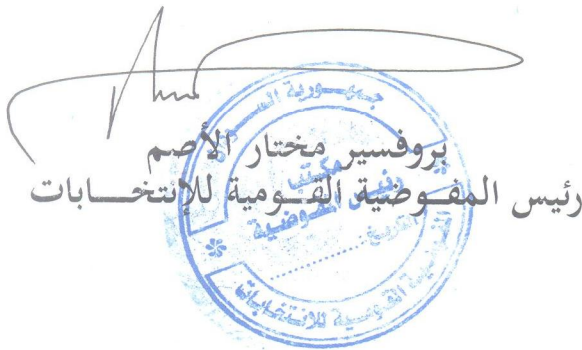 بروفسير مختار الأصم
رئيس المفـوضية القـومية للإنتخـــابات
جمهـورية الســودان
مكتب
رئيس المفوضية
التاريخ..............
المفوضية القومية للانتخابات